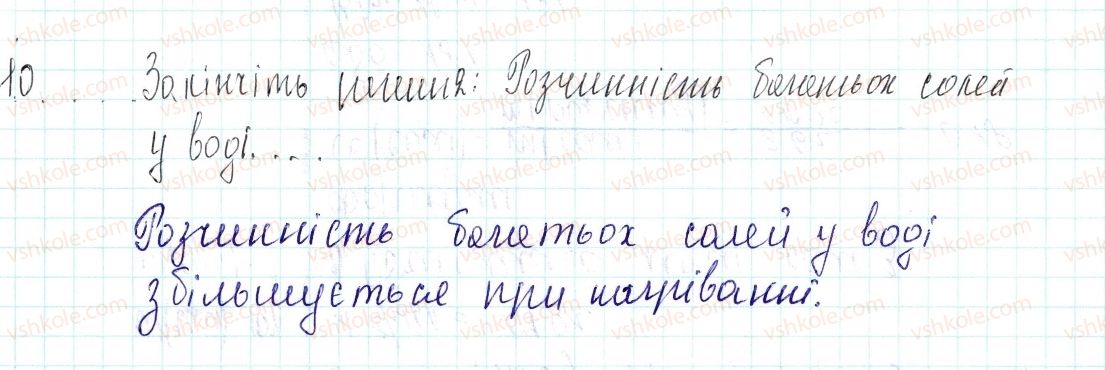 10..... Закінчіть речення: Розчинність багатьох солей
у воді....
Розчинність багатьох солей у воді
збільшується при нагріванні.